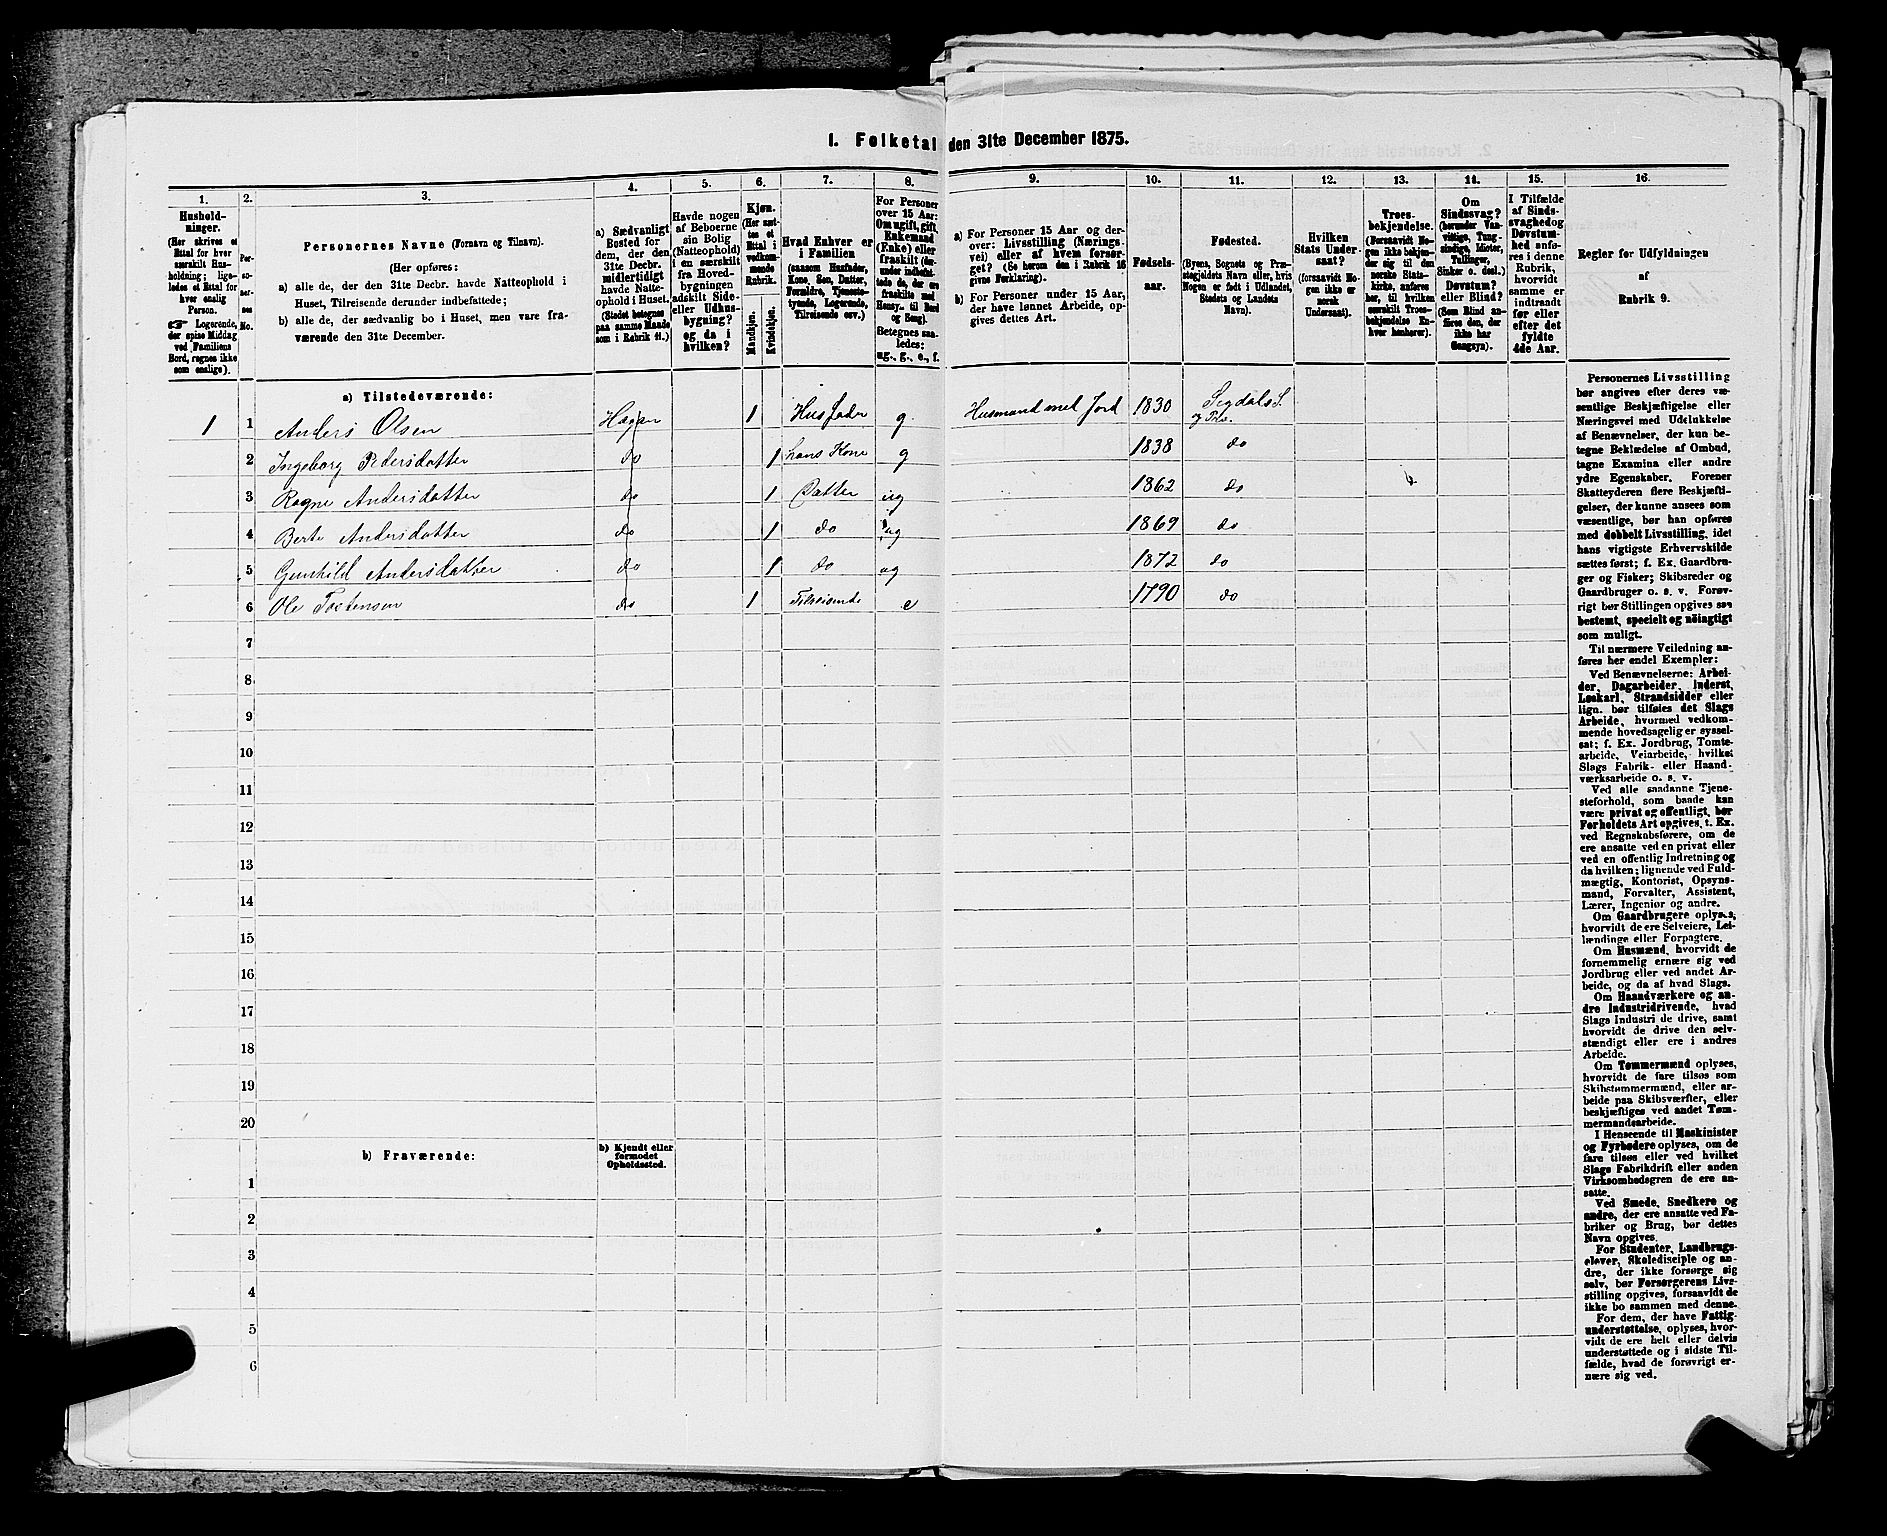 1. Folketal den 31te December 1875.
1.
Hushold-
ninger.
(Her skrives et
Ettal for hver
særskilt Hus-
holdning; lige-
ledes et Ettal for
hver enslig
Person.
☞ Logerende,
der spise Middag
ved Familiens
Bord, regnes ikke
som enslige).
2.
Per-
so-
ner-
nes
No.
3.
Personernes Navne (Fornavn og Tilnavn).
(Her opføres:
a) alle de, der den 31te Decbr. havde Natteophold i
Huset, Tilreisende derunder indbefattede;
b) alle de, der sædvanlig bo i Huset, men vare fra-
værende den 31te December.
4.
a) Sædvanligt
Bosted for
dem, der den
31te Decbr.
midlertidigt
havde Natte-
ophold i Huset.
(Stedet betegnes
paa samme Maade
som i Rubrik 11.)
5.
Havde nogen
af Beboerne
sin Bolig
(Natteophold)
i en særskilt
fra Hoved-
bygningen
adskilt Side-
eller Udhus-
bygning?
og da i
hvilken?
6.
Kjøn.
(Her sæt-
tes et
Ettal i
vedkom-
mende
Rubrik.
Mandkjøn.
Kvindekjøn.
7.
Hvad Enhver er
i Familien
(saasom Husfader,
Kone, Søn, Datter,
Forældre, Tjeneste-
tyende, Logerende,
Tilreisende osv.)
8.
For Personer
over 15 Aar:
Om ugift, gift,
Enkemand
(Enke) eller
fraskilt (der-
under indbefat-
tede de, der ere
fraskilte med
Hensyn til Bord
og Seng).
Betegnes saa-
ledes:
ug., g., e., f.
9.
a) For Personer 15 Aar og der-
over: Livsstilling (Nærings-
vei) eller af hvem forsør-
get? (Se herom den i Rubrik 16
givne Forklaring).
b) For Personer under 15 Aar,
der have lønnet Arbeide, op-
gives dettes Art.
10.
Fødsels-
aar.
11.
Fødested.
(Byens, Sognets og Præ-
stegjeldets Navn eller, hvis
Nogen er født i Udlandet,
Stedets og Landets
Navn).
12.
Hvilken
Stats Under-
saat?
(forsaavidt No-
gen ikke er
norsk
Undersaat).
13.
Troes-
bekjendelse.
(Forsaavidt No-
gen ikke bekjen-
der sig til den
norske Stats-
kirke, anføres
her, til hvilken
særskilt Troes-
bekjendelse En-
hver henhører).
14.
Om
Sindssvag?
(herunder Van-
vittige, Tung-
sindige, Idioter,
Tullinger,
Sinker o. desl.)
Døvstum?
eller Blind?
(Som Blind an-
føres den, der
ikke har
Gangsyn).
15.
I Tilfælde
af Sinds-
svaghed og
Døvstum-
hed anfø-
res i denne
Rubrik,
hvorvidt
samme er
indtraadt
før eller
efter det
fyldte
4de Aar.
16.
Regler for Udfyldningen
af
Rubrik 9.
a) Tilstedeværende:
1 1 Anders Olsen Hagan 1 Husfader g Husmand med Jord 1830 Sigdals S. og Prs.
2 Ingeborg Pedersdatter do 1 hans Kone g 1838 do
3 Ragne Andersdatter do 1 Datter ug 1862 do
4 Berte Andersdatter do 1 do ug 1869 do
5 Gunhild Andersdatter do 1 do ug 1872 do
6 Ole Tostensen do 1 Tilreisende e 1790 do
7
8
9
10
11
12
13
14
15
16
17
18
19
20
b) Fraværende:
b) Kjendt eller
formodet
Opholdssted.
1
2
3
4
5
6
Personernes Livsstilling
bør angives efter deres væ-
sentlige Beskjæftigelse eller
Næringsvei med Udelukkelse
af Benævnelser, der kun be-
tegne Beklædelse af Ombud,
tagne Examina eller andre
ydre Egenskaber. Forener
Skatteyderen flere Beskjæfti-
gelser, der kunne ansees som
væsentlige, bør han opføres
med dobbelt Livsstilling, idet
hans vigtigste Erhvervskilde
sættes først; f. Ex. Gaardbru-
ger og Fisker; Skibsreder og
Gaardbruger o. s. v. Forøv-
rigt bør Stillingen opgives saa
bestemt, specielt og nöiagtigt
som muligt.
Til nærmere Veiledning an-
føres her endel Exempler:
Ved Benævnelserne: Arbei-
der, Dagarbeider, Inderst,
Løskarl, Strandsidder eller
lign. bør tilføies det Slags
Arbeide, hvormed vedkom-
mende hovedsagelig er syssel-
sat; f. Ex. Jordbrug, Tomte-
arbeide, Veiarbeide, hvilket
Slags Fabrik- eller Haand-
værksarbeide o. s. v.
Ved alle saadanne Tjene-
steforhold, som baade kan
være privat og offentligt, bør
Forholdets Art opgives, t. Ex.
ved Regnskabsførere, om de
ere ansatte ved en privat eller
ved en offentlig Indretning og
da hvilken; lignende ved Fuld-
mægtig, Kontorist, Opsyns-
mand, Forvalter, Assistent,
Lærer, Ingeniør og andre.
Om Gaardbrugere oplyses,
hvorvidt de ere Selveiere, Lei-
lændinge eller Forpagtere.
Om Husmænd, hvorvidt de
fornemmelig ernære sig ved
Jordbrug eller ved andet Ar-
beide, og da af hvad Slags.
Om Haandværkere og an-
dre Industridrivende, hvad
Slags Industri de drive, samt
hvorvidt de drive den selv-
stændigt eller ere i andres
Arbeide.
Om Tømmermænd oplyses,
hvorvidt de fare tilsøs som
Skibstømmermænd, eller ar-
beide paa Skibsværfter, eller
beskjæftiges ved andet Tøm-
mermandsarbeide.
I Henseende til Maskinister
og Fyrbødere oplyses, om de
fare tilsøs eller ved hvilket
Slags Fabrikdrift eller anden
Virksomhedsgren de ere an-
satte.
Ved Smede, Snedkere og
andre, der ere ansatte ved Fa-
briker og Brug, bør dettes
Navn opgives.
For Studenter, Landbrugs-
elever, Skoledisciple og an-
dre, der ikke forsørge sig
selv, bør Forsørgerens Livs-
stilling opgives, forsaavidt de
ikke bo sammen med denne.
For dem, der have Fattig-
understøttelse, oplyses, hvor-
vidt de ere helt eller delvis
understøttede og i sidste Til-
fælde, hvad de forøvrigt er-
nære sig ved.